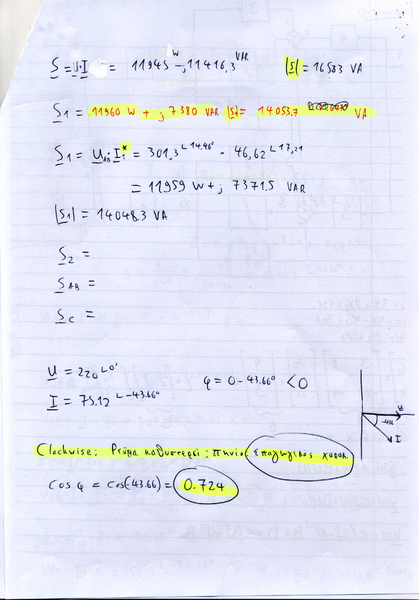 S = U·I = 11945 W - j 11416,3 VAR |S| = 16583 VA
S1 = 11960 W + j 7380 VAR |S1| = 14053.7 VA
S1 = UAB·I1* = 301.3∠14.46° · 46,62∠17,21
= 11959 W + j 7371.5 VAR
|S1| = 14048.3 VA
S2 =
SAB =
SC =
U = 220∠0° φ = 0 - 43.66° < 0
I = 75.12∠-43.66°
I
Clockwise; Ρεύμα καθυστερεί; πηνίο; Επαγωγικός χαρακ.
cos φ = cos(-43.66) = 0.724